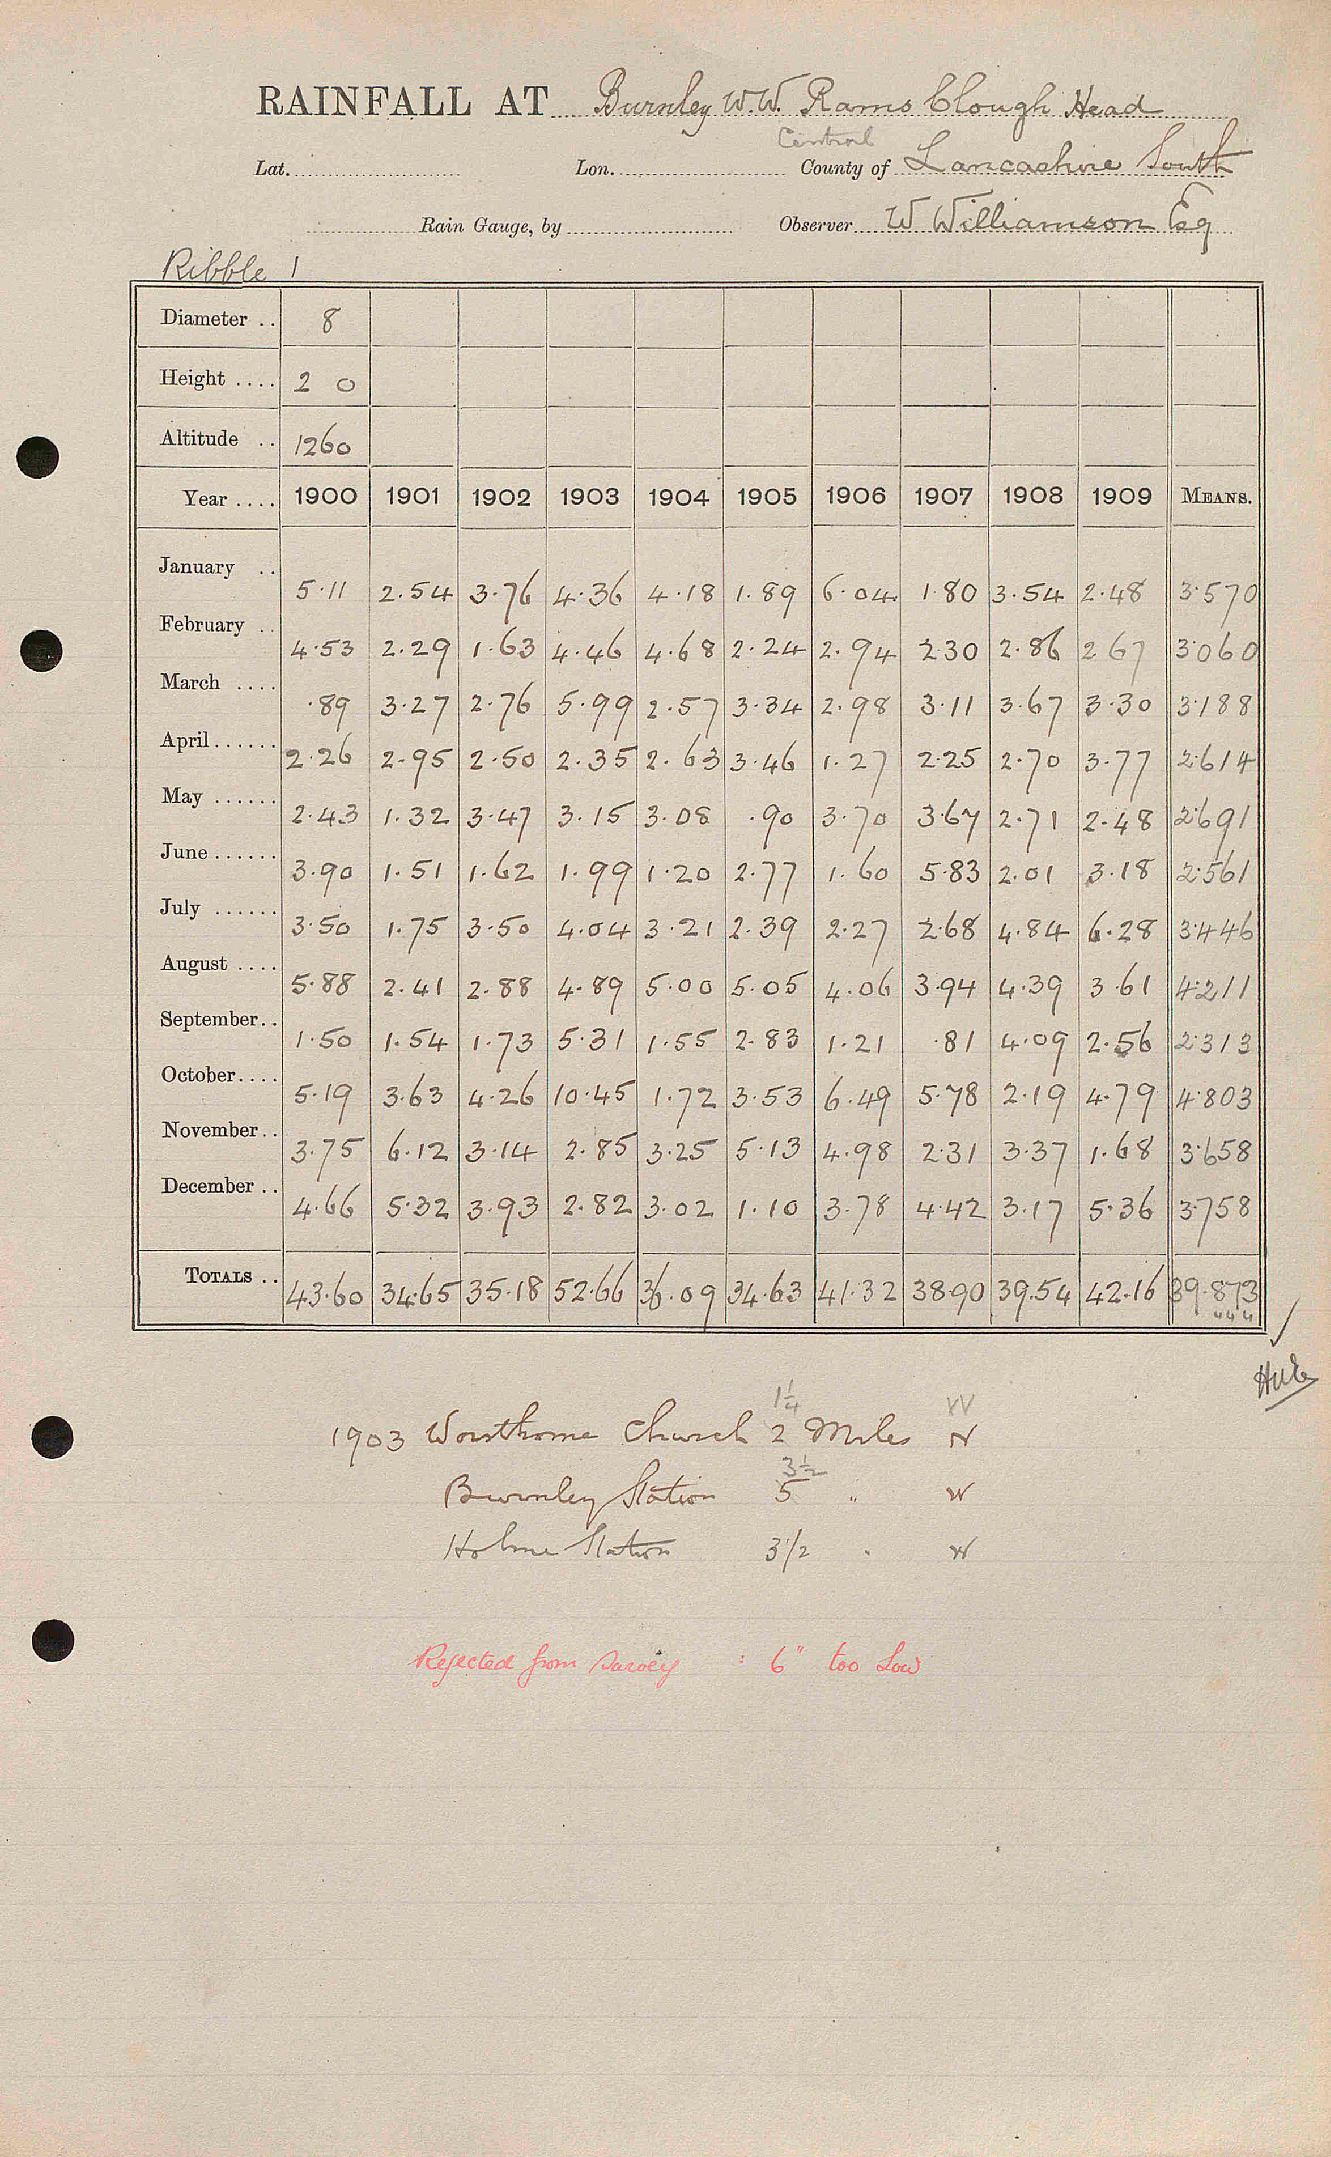 RAINFALL AT Burnley W.W. Rams Clough Head
Central
Lat. Lon. County of Lancashire South
Rain Gauge, by Observer W Williamson Esq
Ribble 1
Diameter .. 8
Height .... 2 0
Altitude .. 1260
Year .... 1900 1901 1902 1903 1904 1905 1906 1907 1908 1909 MEANS.
January .. 5.11 2.54 3.76 4.36 4.18 1.89 6.04 1.80 3.54 2.48 3.570
February .. 4.53 2.29 1.63 4.46 4.68 2.24 2.94 2.30 2.86 2.67 3.060
March .... .89 3.27 2.76 5.99 2.57 3.34 2.98 3.11 3.67 3.30 3.188
April ...... 2.26 2.95 2.50 2.35 2.63 3.46 1.27 2.25 2.70 3.77 2.614
May ...... 2.43 1.32 3.47 3.15 3.08 .90 3.70 3.67 2.71 2.48 2.691
June ...... 3.90 1.51 1.62 1.99 1.20 2.77 1.60 5.83 2.01 3.18 2.561
July ...... 3.50 1.75 3.50 4.04 3.21 2.39 2.27 2.68 4.84 6.28 3.446
August .... 5.88 2.41 2.88 4.89 5.00 5.05 4.06 3.94 4.39 3.61 4.211
September .. 1.50 1.54 1.73 5.31 1.55 2.83 1.21 .81 4.09 2.56 2.313
October .... 5.19 3.63 4.26 10.45 1.72 3.53 6.49 5.78 2.19 4.79 4.803
November .. 3.75 6.12 3.14 2.85 3.25 5.13 4.98 2.31 3.37 1.68 3.658
December .. 4.66 5.32 3.93 2.82 3.02 1.10 3.78 4.42 3.17 5.36 3.758
TOTALS .. 43.60 34.65 35.18 52.66 36.09 34.63 41.32 38.90 39.54 42.16 39.873
1¼ W
1903 Worsthorne Church 2 Miles N
3½
Burnley Station 5 " W
Holme Station 3½ " W
Rejected from Survey : 6" too Low